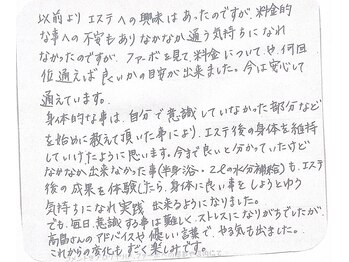 以前よりエステへの興味はあったのですが、料金的
な事への不安もありなかなか通う気持ちになれ
なかったのですが ファーボを見て、料金についてや、何回
位通えば良いかの目安が出来ました。今は安心して
通えています。
身体的な事は、自分で意識していなかった部分など
を始めに教えて頂いた事により、エステ後の身体を維持
していけたように思います。今まで良いと分かっていたけど
なかなか出来なかった事(半身浴・2ℓの水分補給)も、エステ
後の成果を体験したら、身体に良い事をしようとゆう
気持ちになれ実践 出来るようになりました。
でも、毎日、意識する事は難しく、ストレスになりがちでしたが、
高畠さんのアドバイスや優しい言葉で、やる気も出ました。
これからの変化も すごく楽しみです。